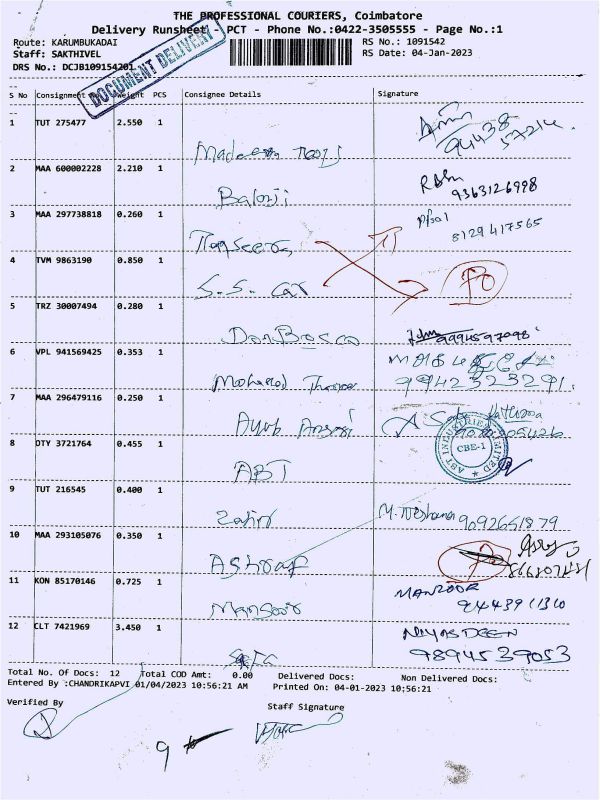 THE PROFESSIONAL COURIERS, Coimbatore
Delivery Runsheet - PCT - Phone No.:0422-3505555 - Page No.:1
Route: KARUMBUKADAI RS No.: 1091542
Staff: SAKTHIVEL RS Date: 04-Jan-2023
DRS No.: DCJB109154201
DOCUMENT DELIVERY
S No Consignment Weight PCS Consignee Details Signature
1 TUT 275477 2.550 1
94438 57214
2 MAA 600002228 2.210 1 Balaji
9363126998
3 MAA 297738818 0.260 1
8129417565
4 TVM 9863190 0.850 1 S.S. Car
5 TRZ 30007494 0.280 1 Don Bosco
9994597098
6 VPL 941569425 0.353 1 Mohamed
9942323291.
7 MAA 296479116 0.250 1 Ayub Ansari
8 OTY 3721764 0.455 1 ABT
ABT INDUSTRIES LIMITED
CBE-1
9 TUT 216545 0.400 1
9092651879
10 MAA 293105076 0.350 1 Ashraf
11 KON 85170146 0.725 1 Mansoor MANZOOR
12 CLT 7421969 3.450 1 NIYASDEEN
9894539053
Total No. Of Docs: 12 Total COD Amt: 0.00 Delivered Docs: Non Delivered Docs:
Entered By :CHANDRIKAPVI 01/04/2023 10:56:21 AM Printed On: 04-01-2023 10:56:21
Verified By Staff Signature
9